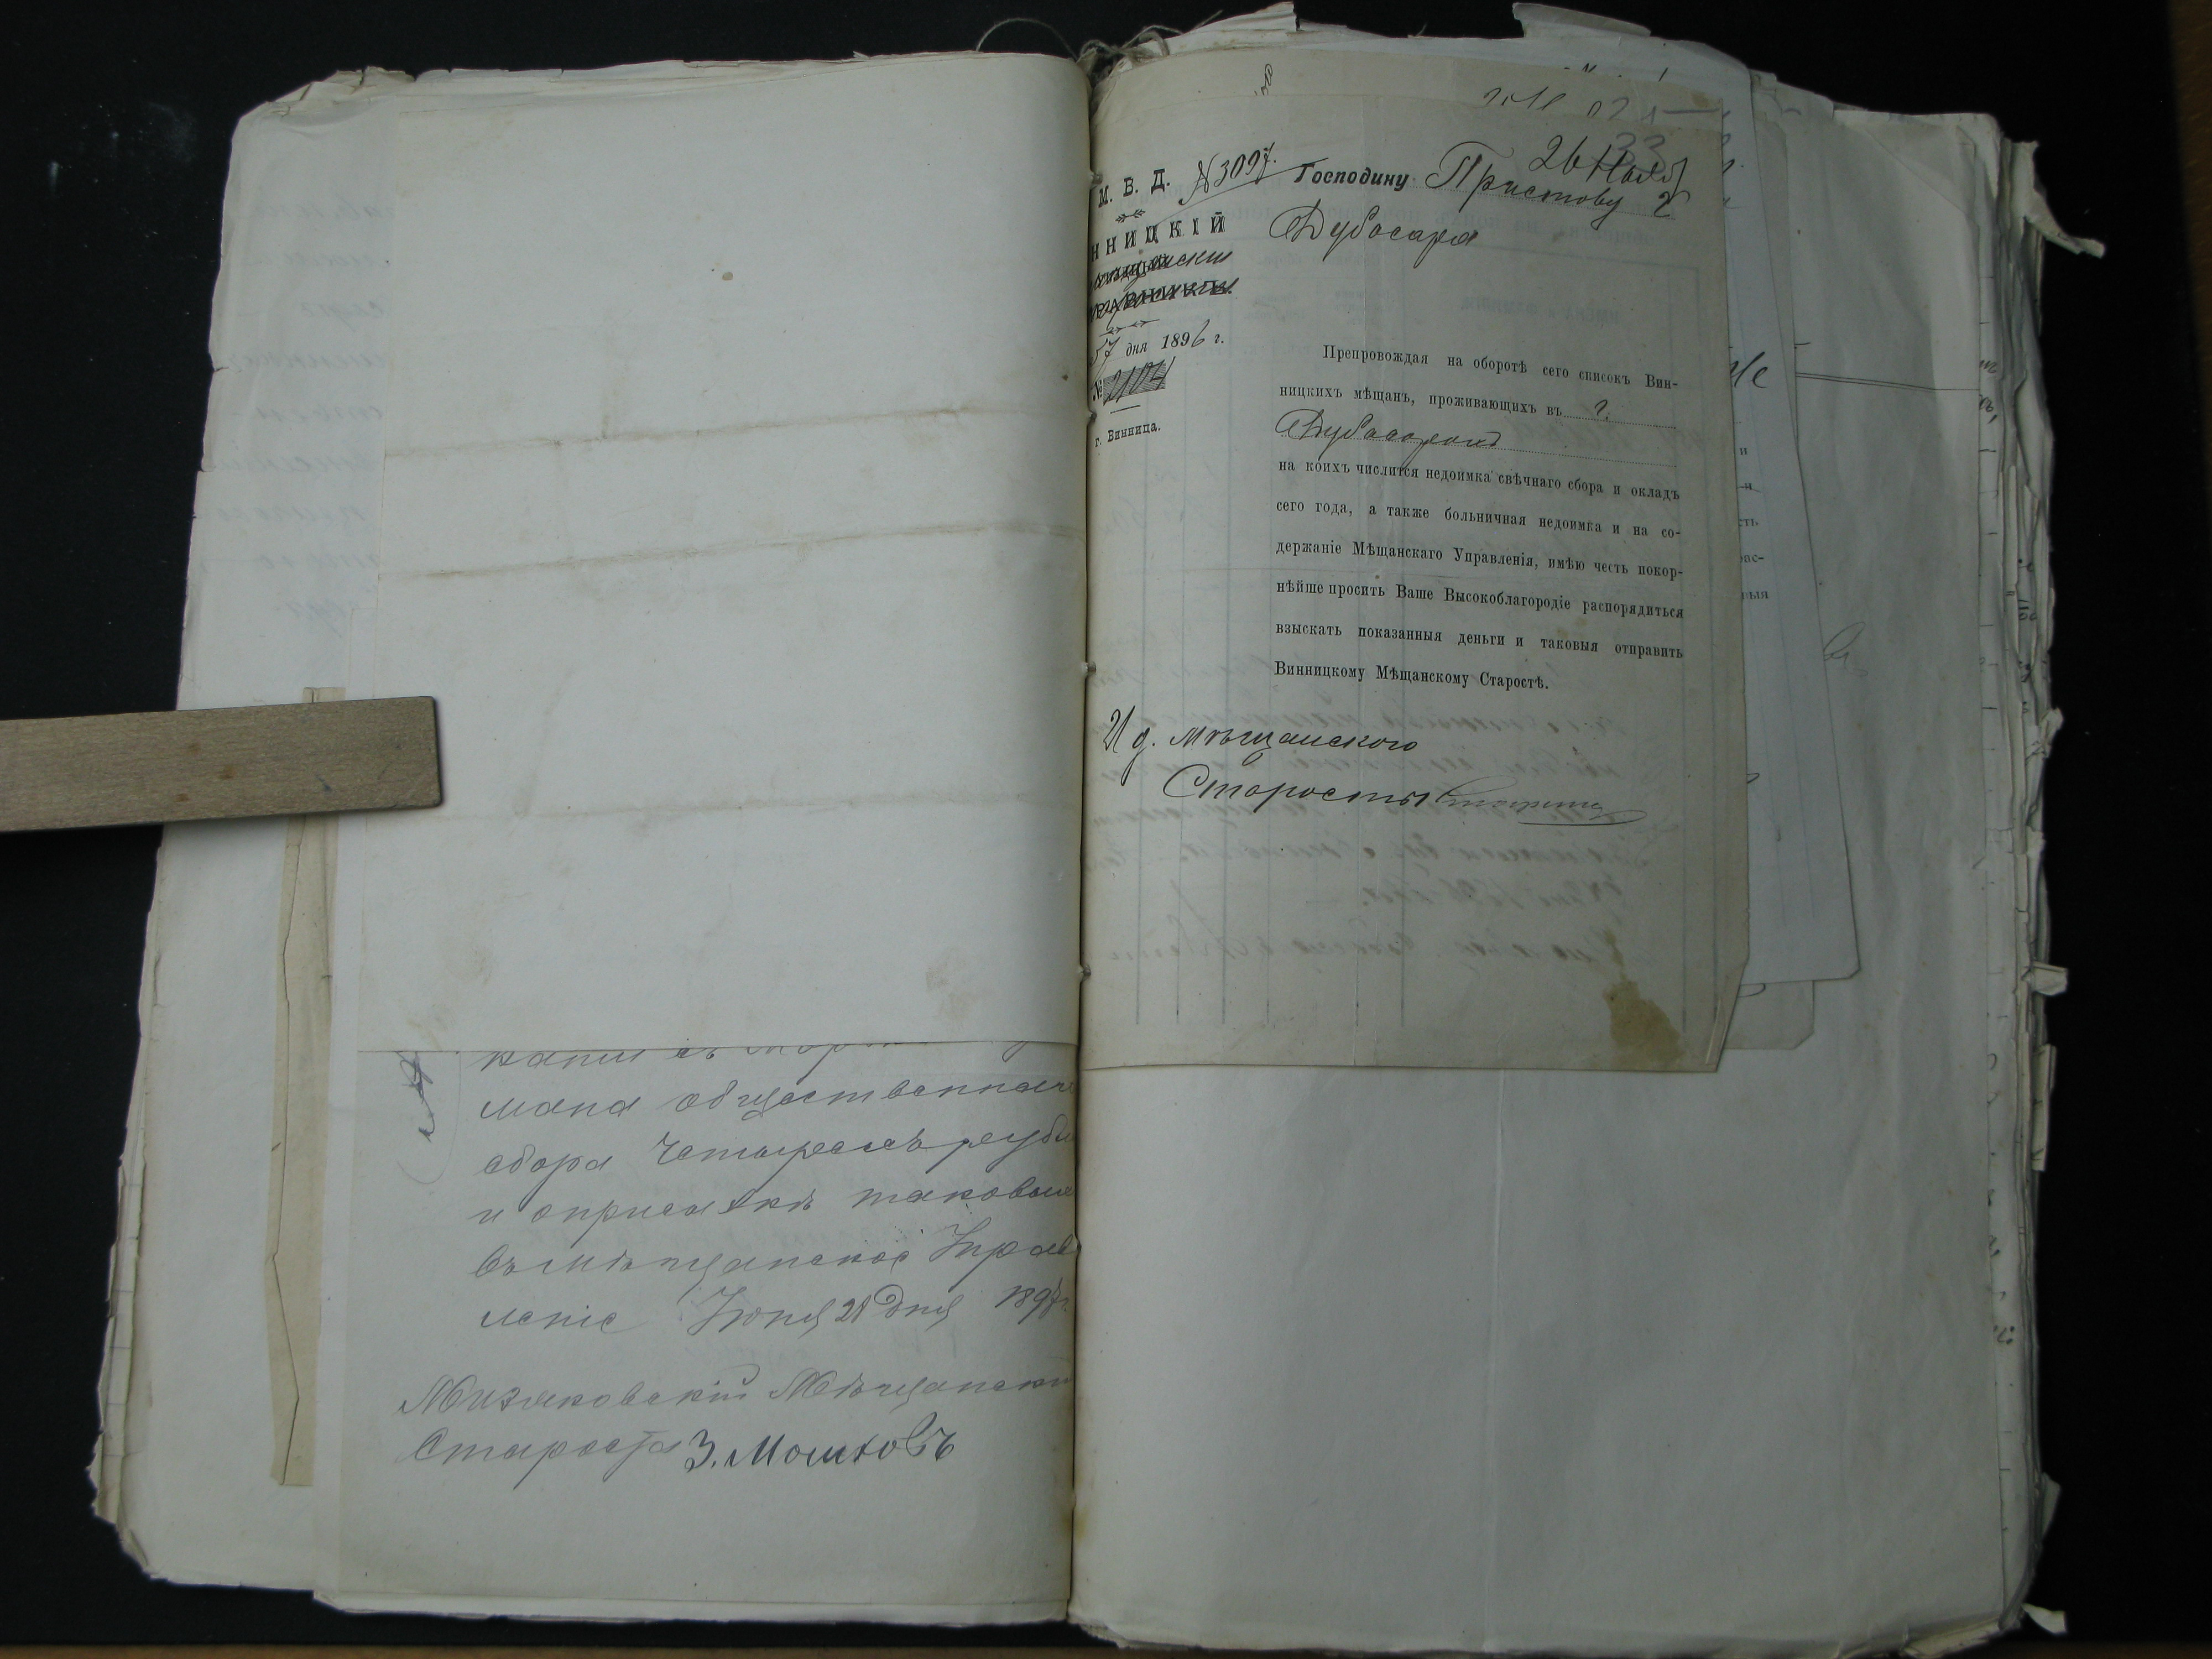 мана общественнаго
сбора Четырехъ рубл
и таковыя
въ Мѣщанское Управ
леніе Іюня 28 дня 1897 г.
Мизяковскій Мѣщанскій
Староста З. Мошковъ
26 Нояб
33
М. В. Д. №3097.
ННИЦКІЙ
РАВНИКЪ.
7 дня 1896 г.
№ 2104
г. Винница.
Господину Приставу г
Дубосара
Препровождая на оборотѣ сего списокъ Вин-
ницкихъ мѣщанъ, проживающихъ въ г.
на коихъ числится недоимка свѣчнаго сбора и окладъ
сего года, а также больничная недоимка и на со-
держаніе Мѣщанскаго Управленія, имѣю честь покор-
нѣйше просить Ваше Высокоблагородіе распорядиться
взыскать показанныя деньги и таковыя отправить
Винницкому Мѣщанскому Старостѣ.
И д. Мѣщанского
Старосты